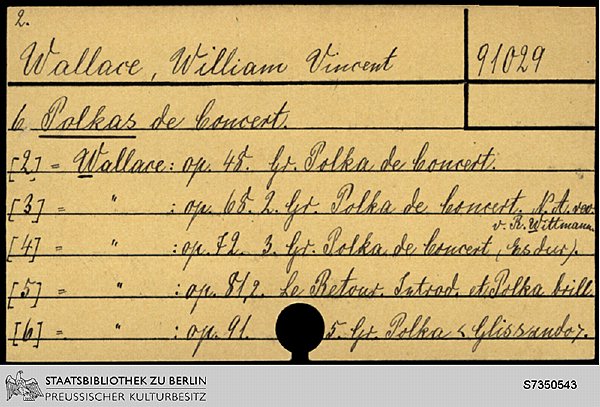 2.
Wallace, William Vincent 91029
6 Polkas de Concert.
[2] = Wallace: op. 48. Gr. Polka de Concert.
[3] = " : op. 68. 2. Gr. Polka de Concert. N. A. rev.
v. R. Wittmann.
[4] = " : op. 72. 3. Gr. Polka de Concert (Esdur).
[5] = " : op. 81,2. Le Retour. Introd. et Polka brill.
[6] = " : op. 91. 5. Gr. Polka < Glissando >.
STAATSBIBLIOTHEK ZU BERLIN
PREUSSISCHER KULTURBESITZ
S7350543